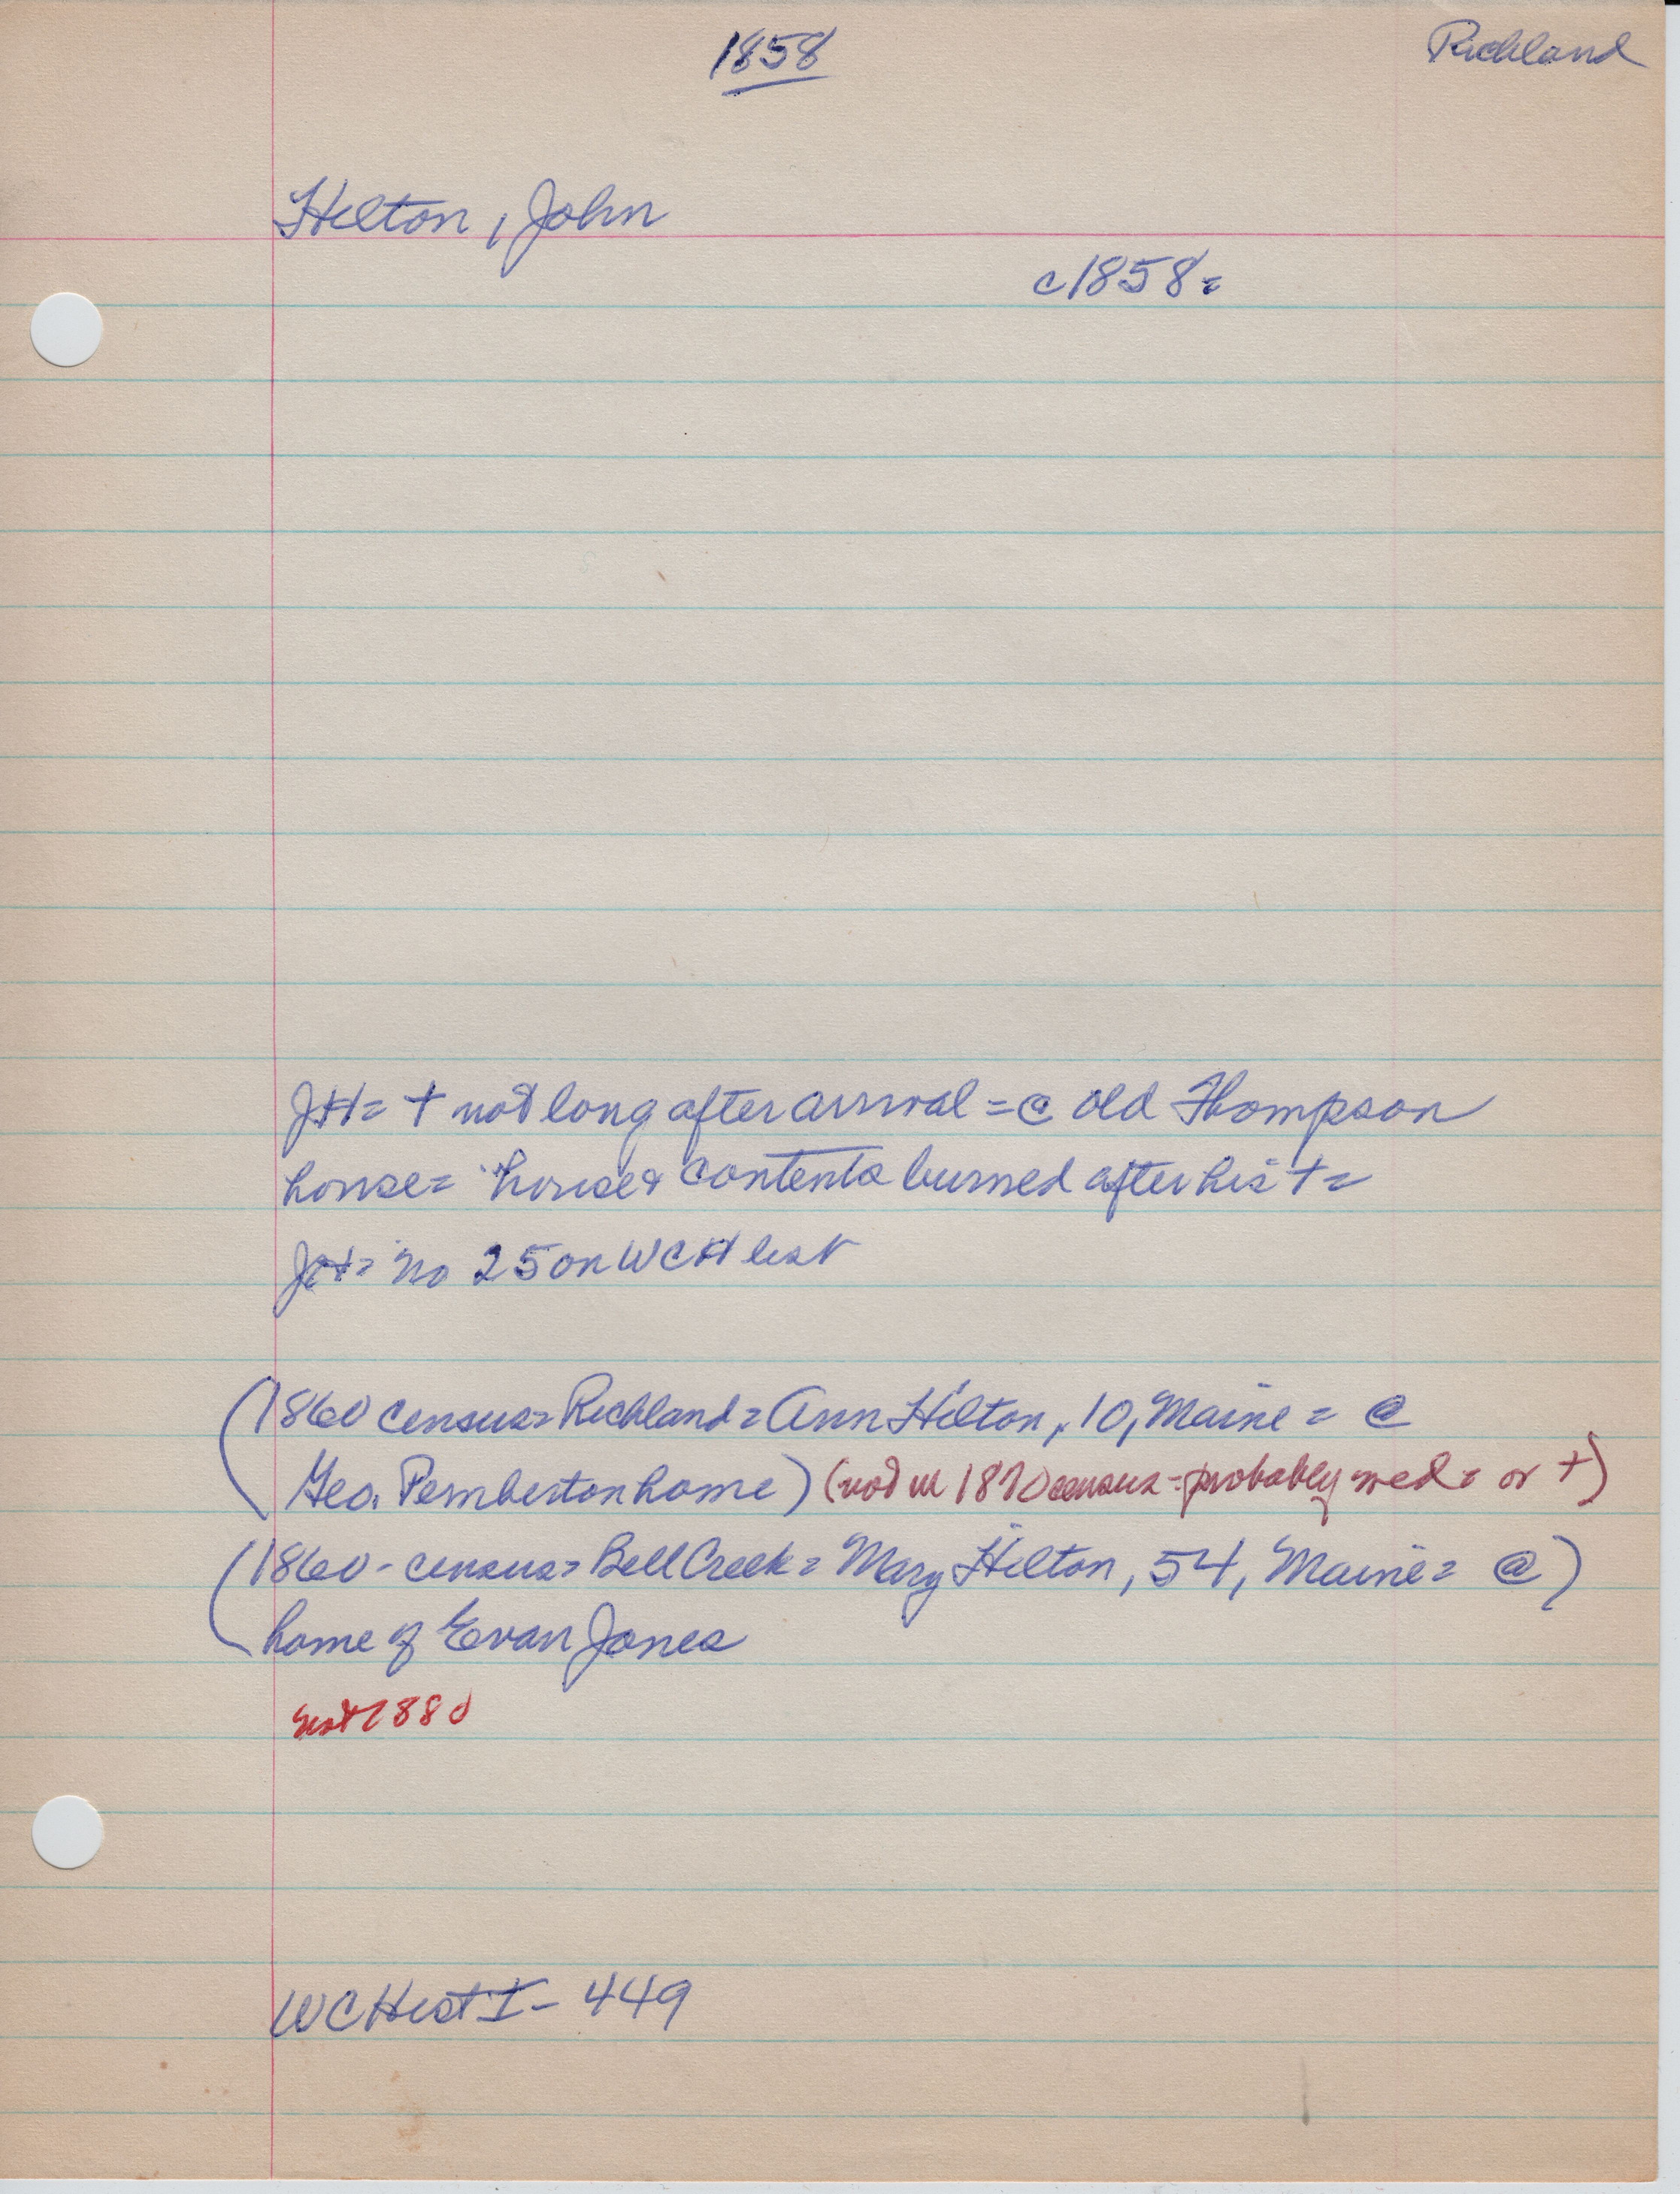 1858
Richland
Hilton, John
c1858=
JH= + not long after arrival = @ old Thompson
house= house & contents burned after his +=
JH= no 25 on WCH list
(1860 census= Richland= Ann Hilton, 10, Maine = @
Geo. Pemberton home) (not in 1870 census - probably wed= or +)
(1860 - census= Bell Creek= Mary Hilton, 54, Maine= @)
home of Evan Jones
not 1880
WC Hist I - 449